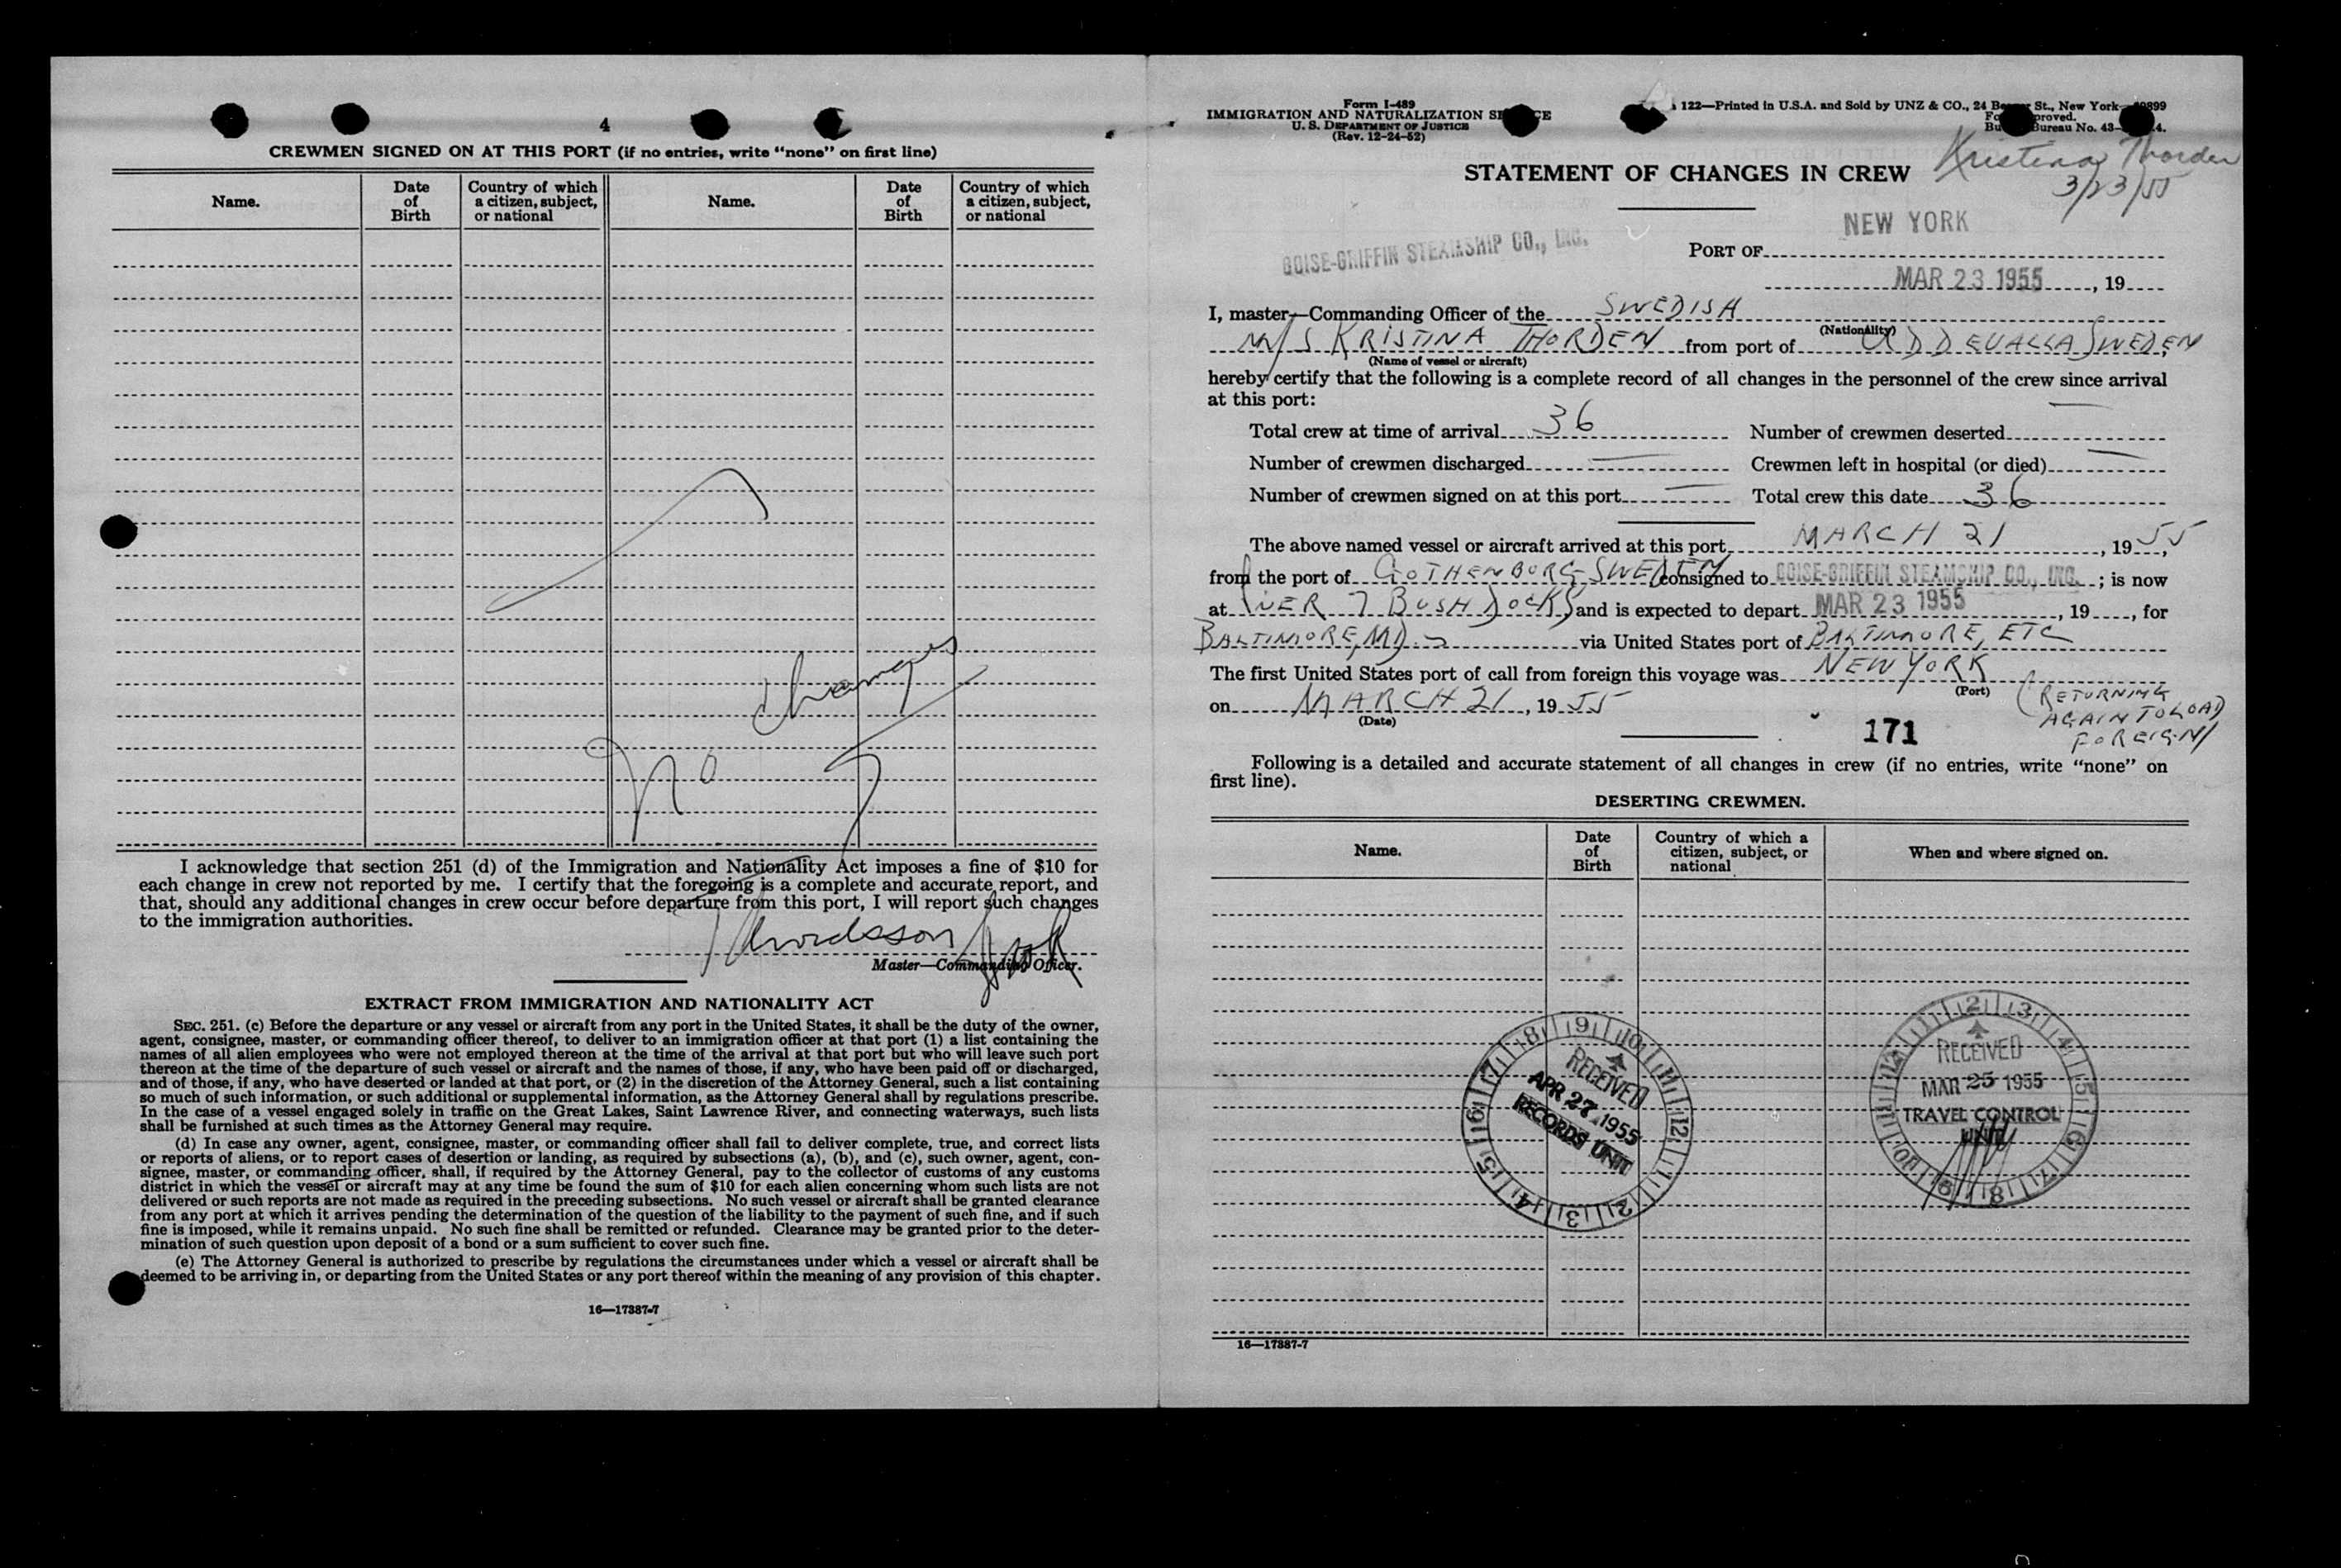 4
CREWMEN SIGNED ON AT THIS PORT (if no entries, write “none” on first line)
Name. Date of Birth Country of which a citizen, subject, or national Name. Date of Birth Country of which a citizen, subject, or national
no changes
I acknowledge that section 251 (d) of the Immigration and Nationality Act imposes a fine of $10 for
each change in crew not reported by me. I certify that the foregoing is a complete and accurate report, and
that, should any additional changes in crew occur before departure from this port, I will report such changes
to the immigration authorities.
Master—Commanding Officer.
EXTRACT FROM IMMIGRATION AND NATIONALITY ACT
SEC. 251. (c) Before the departure or any vessel or aircraft from any port in the United States, it shall be the duty of the owner,
agent, consignee, master, or commanding officer thereof, to deliver to an immigration officer at that port (1) a list containing the
names of all alien employees who were not employed thereon at the time of the arrival at that port but who will leave such port
thereon at the time of the departure of such vessel or aircraft and the names of those, if any, who have been paid off or discharged,
and of those, if any, who have deserted or landed at that port, or (2) in the discretion of the Attorney General, such a list containing
so much of such information, or such additional or supplemental information, as the Attorney General shall by regulations prescribe.
In the case of a vessel engaged solely in traffic on the Great Lakes, Saint Lawrence River, and connecting waterways, such lists
shall be furnished at such times as the Attorney General may require.
(d) In case any owner, agent, consignee, master, or commanding officer shall fail to deliver complete, true, and correct lists
or reports of aliens, or to report cases of desertion or landing, as required by subsections (a), (b), and (c), such owner, agent, con-
signee, master, or commanding officer, shall, if required by the Attorney General, pay to the collector of customs of any customs
district in which the vessel or aircraft may at any time be found the sum of $10 for each alien concerning whom such lists are not
delivered or such reports are not made as required in the preceding subsections. No such vessel or aircraft shall be granted clearance
from any port at which it arrives pending the determination of the question of the liability to the payment of such fine, and if such
fine is imposed, while it remains unpaid. No such fine shall be remitted or refunded. Clearance may be granted prior to the deter-
mination of such question upon deposit of a bond or a sum sufficient to cover such fine.
(e) The Attorney General is authorized to prescribe by regulations the circumstances under which a vessel or aircraft shall be
deemed to be arriving in, or departing from the United States or any port thereof within the meaning of any provision of this chapter.
16—17387-7
Form I-489
IMMIGRATION AND NATURALIZATION
U. S. DEPARTMENT OF JUSTICE
(Rev. 12-24-52)
122—Printed in U.S.A. and Sold by UNZ & CO., 24 St., New York
Bureau No. 43-
Kristina Thorden
3/23/55
STATEMENT OF CHANGES IN CREW
BOISE-GRIFFIN STEAMSHIP CO., INC.
PORT OF NEW YORK
MAR 23 1955, 19
I, master—Commanding Officer of the SWEDISH
(Nationality)
M/S KRISTINA THORDEN from port of UDDEVALLA SWEDEN
(Name of vessel or aircraft)
hereby certify that the following is a complete record of all changes in the personnel of the crew since arrival
at this port:
Total crew at time of arrival 36 Number of crewmen deserted —
Number of crewmen discharged — Crewmen left in hospital (or died) —
Number of crewmen signed on at this port — Total crew this date 36
The above named vessel or aircraft arrived at this port MARCH 21, 19 55,
from the port of GOTHENBORG SWEDEN consigned to BOISE-GRIFFIN STEAMSHIP CO., INC. ; is now
at PIER 7 BUSH DOCKS and is expected to depart MAR 23 1955, 19, for
BALTIMORE, MD. via United States port of BALTIMORE, ETC
The first United States port of call from foreign this voyage was NEW YORK
(Port)
on MARCH 21, 19 55
(Date)
(RETURNING
AGAIN TO LOAD
FOREIGN)
171
Following is a detailed and accurate statement of all changes in crew (if no entries, write “none” on
first line).
DESERTING CREWMEN.
Name. Date of Birth Country of which a citizen, subject, or national When and where signed on.
RECEIVED
APR 27 1955
RECORDS UNIT
RECEIVED
MAR 25 1955
TRAVEL CONTROL
UNIT
16—17387-7